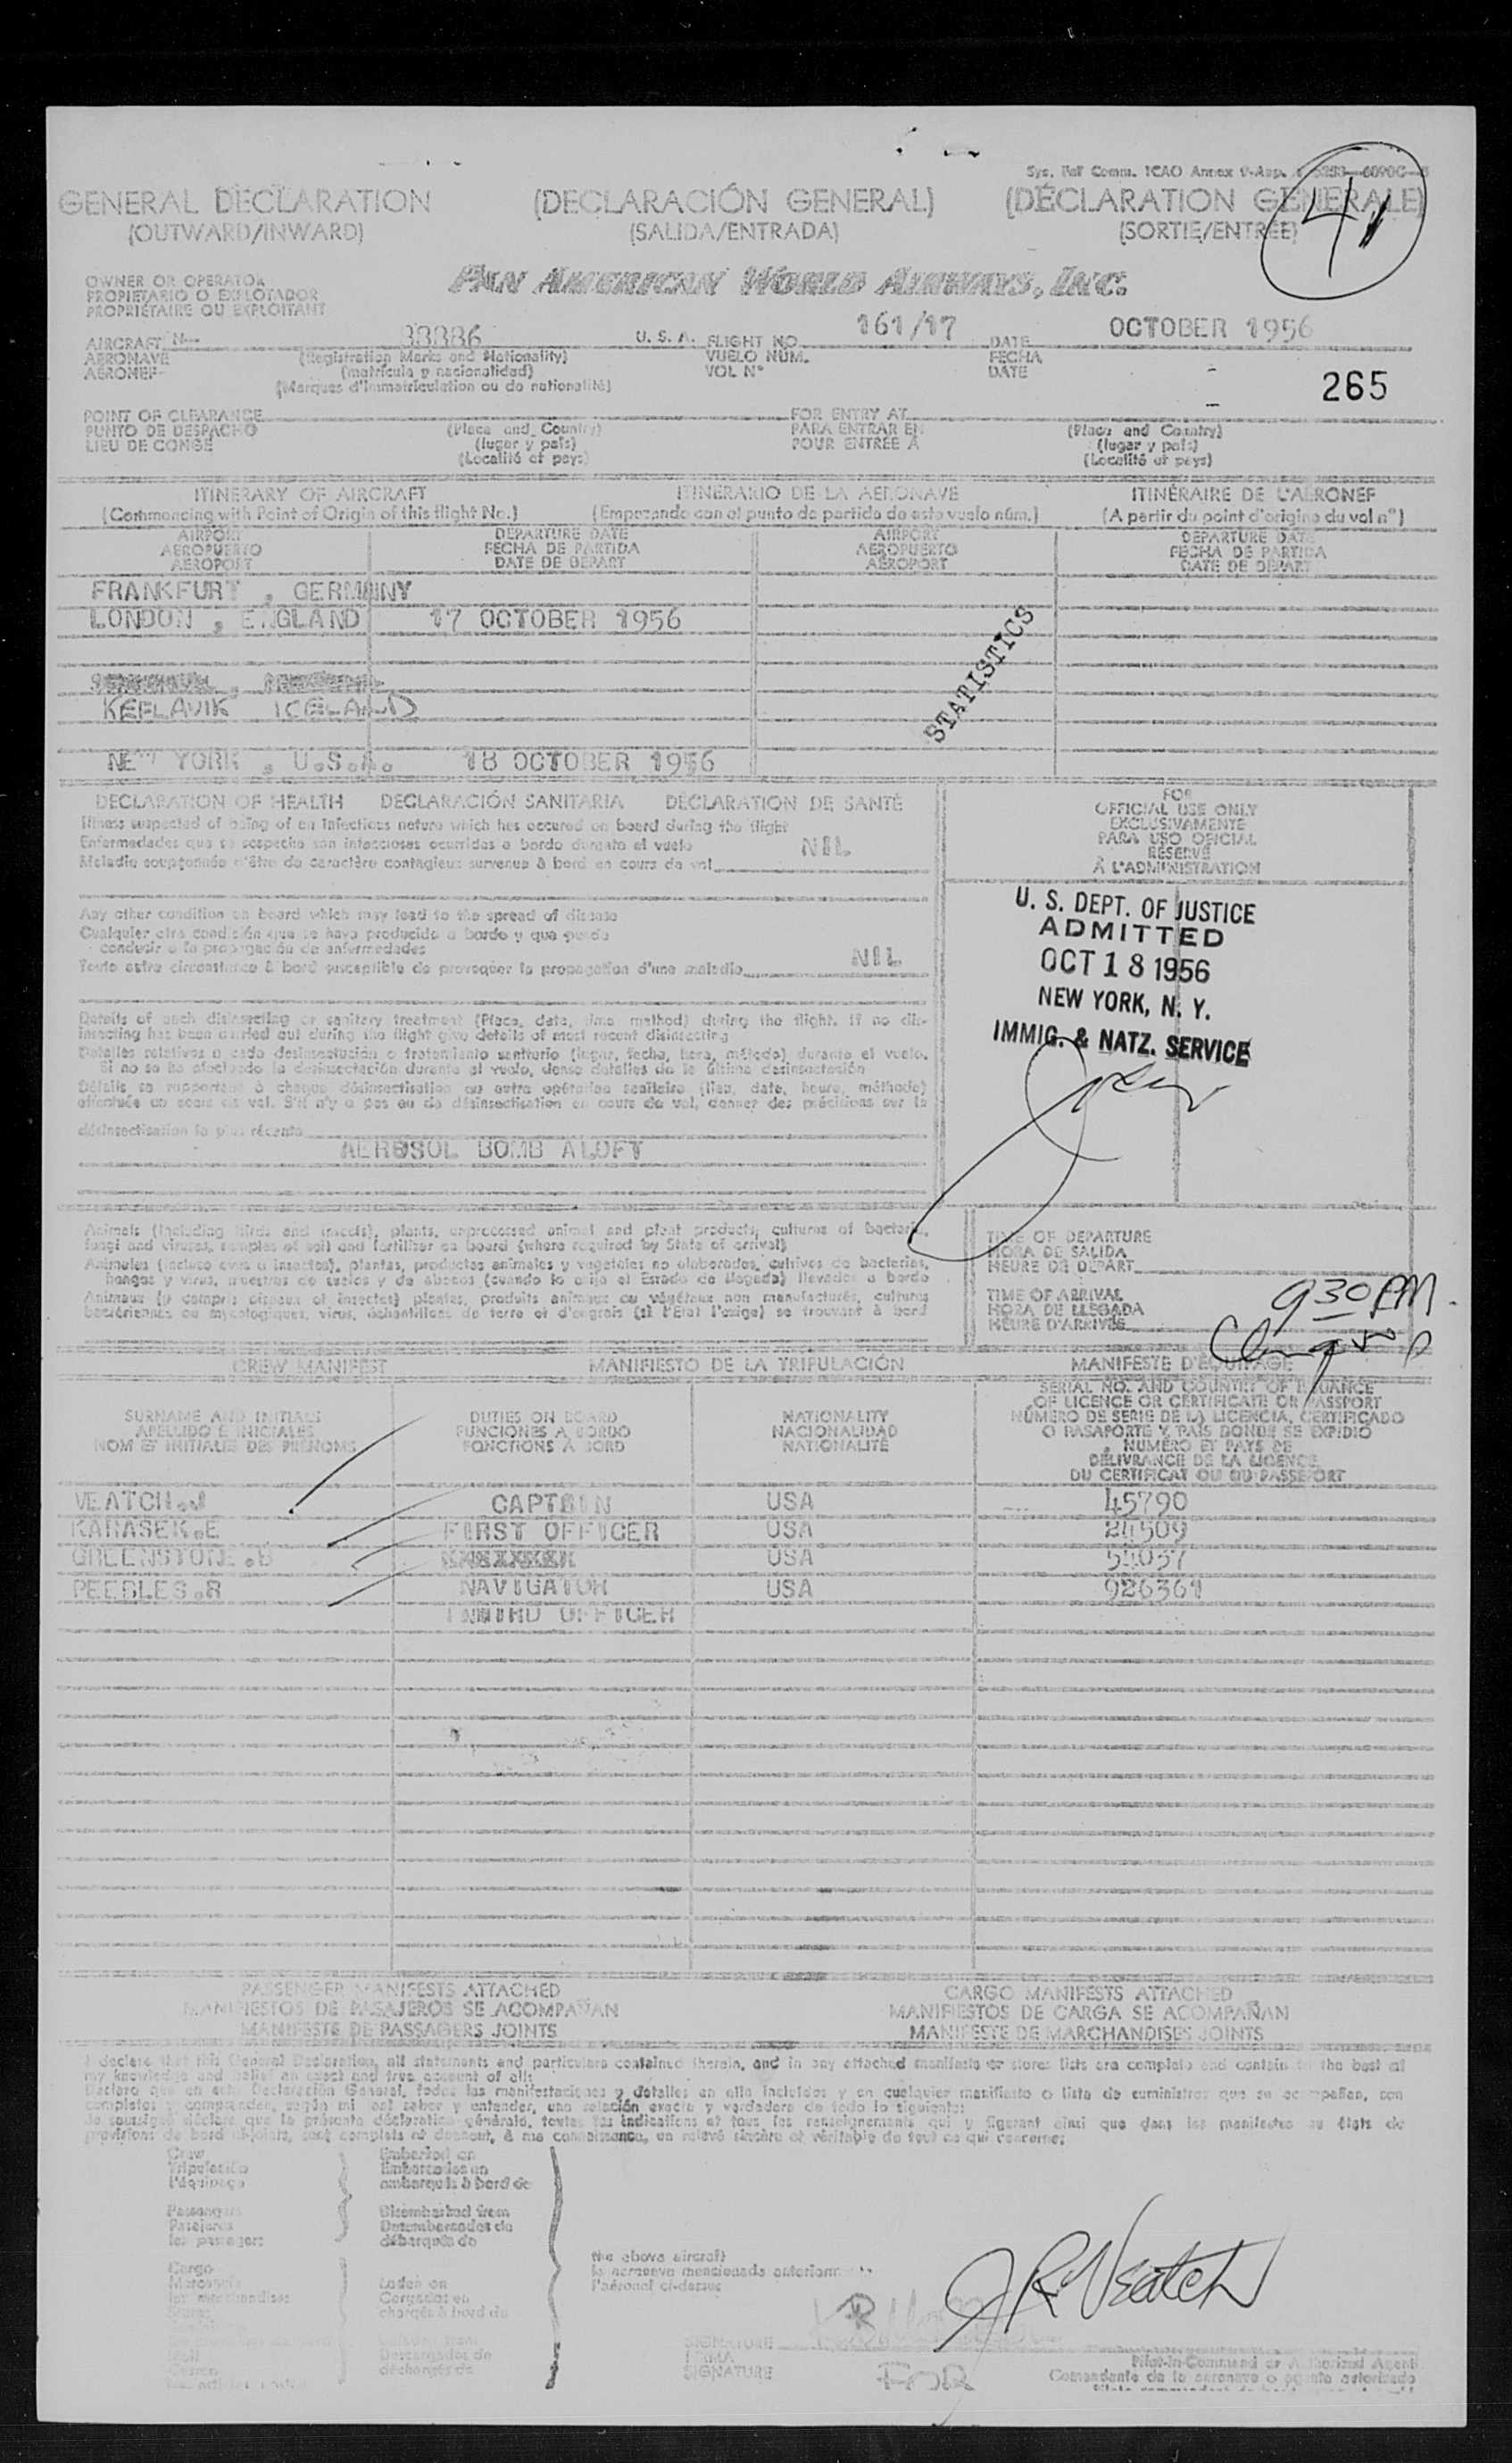 Sys. Ref Comm. ICAO Annex 9-App.
41
GENERAL DECLARATION (DECLARACIÓN GENERAL) (DÉCLARATION GENERALE)
(OUTWARD/INWARD) (SALIDA/ENTRADA) (SORTIE/ENTREE)
OWNER OR OPERATOR
PROPIETARIO O EXPLOTADOR
PROPRIÉTAIRE OU EXPLOITANT
PAN AMERICAN WORLD AIRWAYS, INC.
AIRCRAFT N U. S. A. FLIGHT NO. 161/17 DATE OCTOBER 1956
AERONAVE (Registration Marks and Nationality) VUELO NÚM. FECHA
AÉRONEF (matrícula y nacionalidad) VOL N° DATE
(Marques d'immatriculation ou de nationalité)
265
POINT OF CLEARANCE FOR ENTRY AT
PUNTO DE DESPACHO (Place and Country) PARA ENTRAR EN (Place and Country)
LIEU DE CONGÉ (lugar y país) POUR ENTRÉE À (lugar y país)
(Localité et pays) (Localité et pays)
ITINERARY OF AIRCRAFT ITINERARIO DE LA AERONAVE ITINÉRAIRE DE L'AÉRONEF
(Commencing with Point of Origin of this flight No.) (Empezando con el punto de partida de este vuelo núm.) (A partir du point d'origine du vol n°)
AIRPORT DEPARTURE DATE AIRPORT DEPARTURE DATE
AEROPUERTO FECHA DE PARTIDA AEROPUERTO FECHA DE PARTIDA
AÉROPORT DATE DE DEPART AÉROPORT DATE DE DEPART
FRANKFURT , GERMANY
LONDON , ENGLAND 17 OCTOBER 1956
STATISTICS
KEFLAVIK ICELAND
NEW YORK , U.S.A. 18 OCTOBER 1956
DECLARATION OF HEALTH DECLARACIÓN SANITARIA DÉCLARATION DE SANTÉ
Illness suspected of being of an infectious nature which has occured on board during the flight
Enfermedades que se sospecha son infecciosas ocurridas a bordo durante el vuelo NIL
Maladie soupçonnée d'être de caractère contagieux survenue à bord en cours de vol
FOR
OFFICIAL USE ONLY
EXCLUSIVAMENTE
PARA USO OFICIAL
RÉSERVÉ
À L'ADMINISTRATION
Any other condition on board which may lead to the spread of disease
Cualquier otra condición que se haya producido a bordo y que pueda
conducir a la propagación de enfermedades
Toute autre circonstance à bord susceptible de provoquer la propagation d'une maladie NIL
U. S. DEPT. OF JUSTICE
ADMITTED
OCT 18 1956
NEW YORK, N. Y.
IMMIG. & NATZ. SERVICE
Details of each disinsecting or sanitary treatment (Place, date, time method) during the flight. If no dis-
insecting has been carried out during the flight give details of most recent disinsecting
Detalles relativos a cada desinsectación o tratamiento sanitario (lugar, fecha, hora, método) durante el vuelo.
Si no se ha efectuado la desinsectación durante el vuelo, dense detalles de la última desinsectación
Détails se rapportant à chaque désinsectisation ou autre opération sanitaire (lieu, date, heure, méthode)
effectuée au cours du vol. S'il n'y a pas eu de désinsectisation en cours de vol, donner des précisions sur la
désinsectisation la plus récente
AEROSOL BOMB ALOFT
Animals (including birds and insects), plants, unprocessed animal and plant products, cultures of bacteria,
fungi and viruses, samples of soil and fertilizer on board (where required by State of arrival)
Animales (incluso aves e insectos), plantas, productos animales y vegetales no elaborados, cultivos de bacterias,
hongos y virus, muestras de suelos y de abonos (cuando lo exija el Estado de llegada) llevados a bordo
Animaux (y compris oiseaux et insectes) plantes, produits animaux ou végétaux non manufacturés, cultures
bactériennes ou mycologiques, virus, échantillons de terre et d'engrais (si l'Etat l'exige) se trouvant à bord
TIME OF DEPARTURE
HORA DE SALIDA
HEURE DE DÉPART
TIME OF ARRIVAL 930 PM.
HORA DE LLEGADA
HEURE D'ARRIVÉE
CREW MANIFEST MANIFIESTO DE LA TRIPULACIÓN MANIFESTE D'ÉQUIPAGE
SURNAME AND INITIALS DUTIES ON BOARD NATIONALITY SERIAL NO. AND COUNTRY OF ISSUANCE
APELLIDO E INICIALES FUNCIONES A BORDO NACIONALIDAD OF LICENCE OR CERTIFICATE OR PASSPORT
NOM ET INITIALES DES PRÉNOMS FONCTIONS À BORD NATIONALITÉ NÚMERO DE SERIE DE LA LICENCIA, CERTIFICADO
O PASAPORTE Y PAÍS DONDE SE EXPIDIÓ
NUMÉRO ET PAYS DE
DÉLIVRANCE DE LA LICENCE
DU CERTIFICAT OU DU PASSEPORT
VEATCH.J CAPTAIN USA 45790
KARASEK.E FIRST OFFICER USA 24509
GREENSTONE.B USA
PEEBLES.R NAVIGATOR USA 926361
THIRD OFFICER
PASSENGER MANIFESTS ATTACHED CARGO MANIFESTS ATTACHED
MANIFIESTOS DE PASAJEROS SE ACOMPAÑAN MANIFIESTOS DE CARGA SE ACOMPAÑAN
MANIFESTE DE PASSAGERS JOINTS MANIFESTE DE MARCHANDISES JOINTS
I declare that this General Declaration, all statements and particulars contained therein, and in any attached manifests or stores lists are complete and contain to the best of
my knowledge and belief an exact and true account of all:
Declaro que en esta Declaración General, todas las manifestaciones y detalles en ella incluidos y en cualquier manifiesto o lista de suministros que se acompañan, son
completos y comprenden, según mi leal saber y entender, una relación exacta y verdadera de todo lo siguiente:
Je soussigné déclare que la présente déclaration générale, toutes les indications et tous les renseignements qui y figurent ainsi que dans les manifestes ou états de
provisions de bord ci-joints, sont complets et donnent, à ma connaissance, un relevé sincère et véritable de tout ce qui concerne:
Crew Embarked on
Tripulación Embarcados en
l'équipage embarqués à bord de
Passengers Disembarked from
Pasajeros Desembarcados de
les passagers débarqués de
Cargo the above aircraft
Mercancía Laden on la aeronave mencionada anteriormente
les marchandises Cargadas en l'aéronef ci-dessus
chargés à bord de
JR Veatch
SIGNATURE
FIRMA
SIGNATURE
Descargados de
déchargés de
FOR
Pilot-in-Command or Authorized Agent
Comandante de la aeronave o agente autorizado